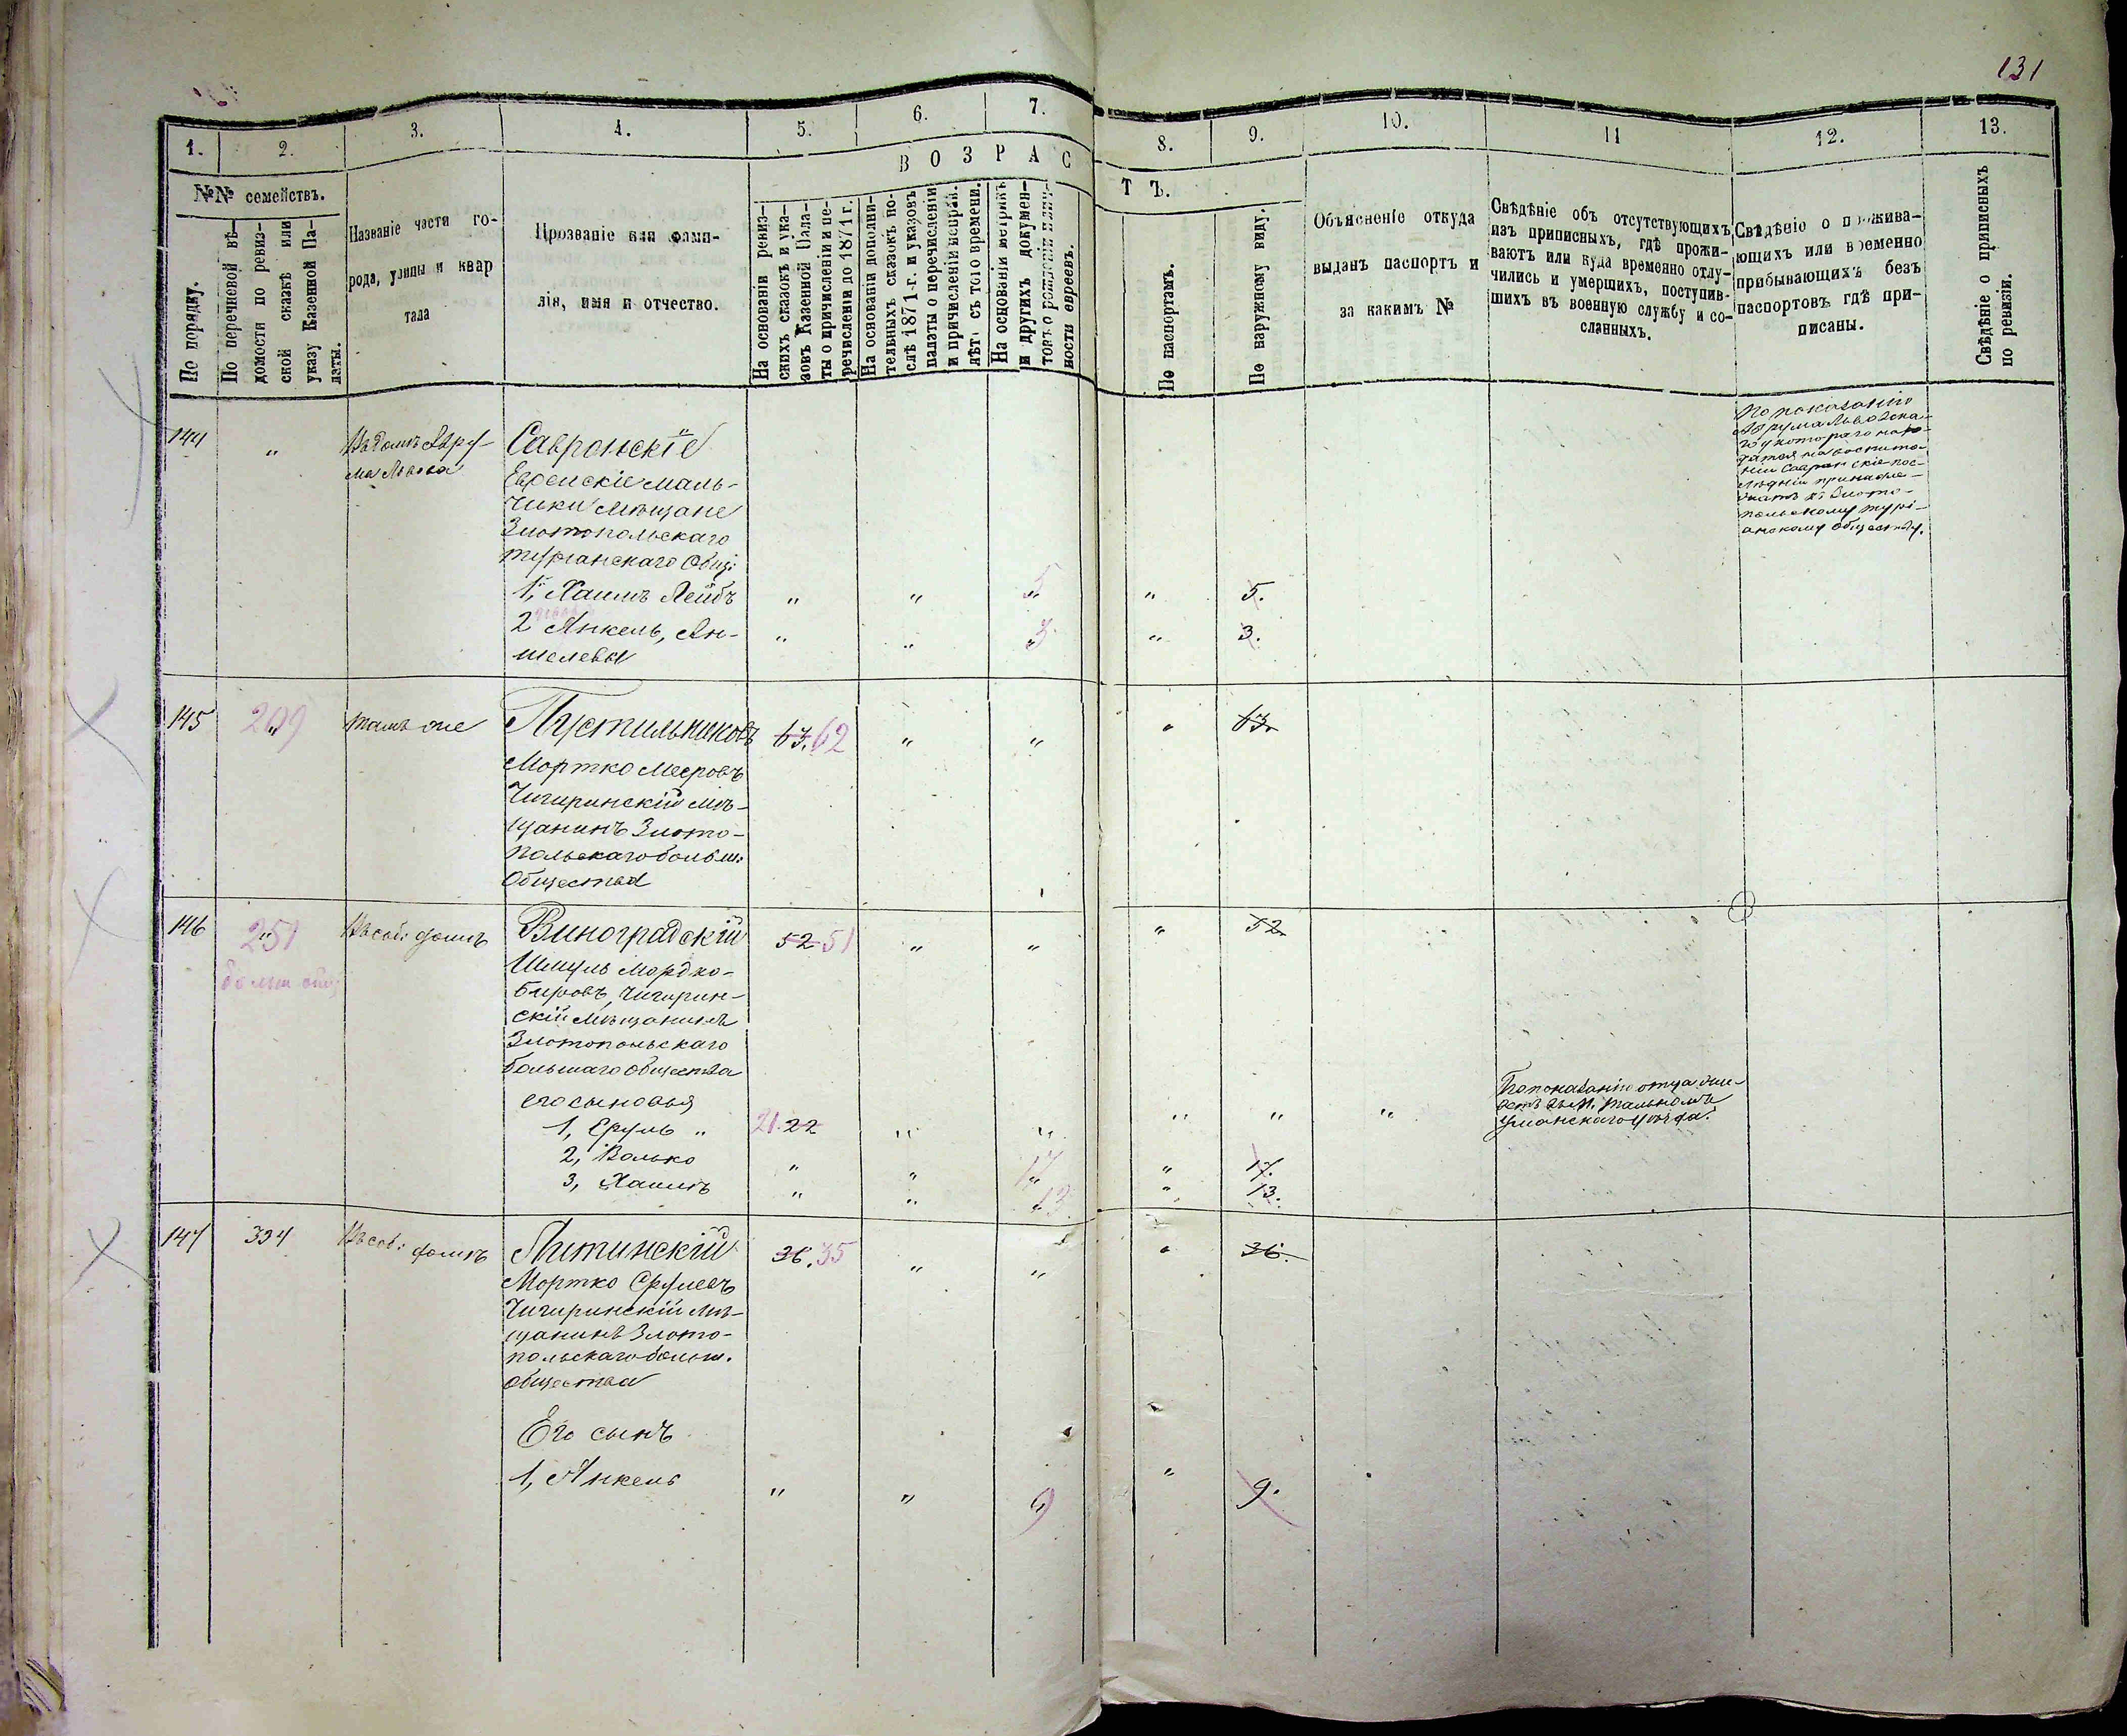 131
1. 2. 3. 4. 5. 6. 7. 8. 9. 10. 11 12. 13.
№№ семействъ.
В О З Р А С Т Ъ.
По порядку.
По перечновой вѣ-
домости по ревиз-
ской сказкѣ или
указу Казенной Па-
латы.
Названіе части го-
рода, улицы и квар
тала
Прозваніе или фами-
лія, имя и отчество.
На основаніи ревиз-
скихъ сказокъ и ука-
зовъ Казенной Пала-
ты о причисленіи и пе-
речисленіи до 1871 г.
На основаніи дополни-
тельныхъ сказокъ по-
слѣ 1871 г. и указовъ
палаты о перечисленіи
и причисленіи неприв.
лѣтъ съ того времени.
На основаніи метрикъ
и другихъ докумен-
товъ о рожденіи и лич-
ности евреевъ.
По паспортамъ.
По наружному виду.
Объясненіе откуда
выданъ паспортъ и
за какимъ №
Свѣдѣніе объ отсутствующихъ
изъ приписныхъ, гдѣ прожи-
ваютъ или куда временно отлу-
чились и умершихъ, поступив-
шихъ въ военную службу и со-
сланныхъ.
Свѣдѣніе о прожива-
ющихъ или временно
прибывающихъ безъ
паспортовъ гдѣ при-
писаны.
Свѣдѣніе о приписныхъ
по ревизіи.
144 " Въ домѣ Авру-
ма Львова
Савронскіе
Еврейскіе маль-
чики мѣщане
Златопольскаго
туріанскаго Общ:
1, Хаимъ Лейбъ " " 5 " 5.
2 Янкель, Ан- " " 3 " 3.
шелевы
По показанію
Аврума Львовска-
го у котораго нахо-
дятся на воспита-
ніи Савранскіе пос-
лѣдніи принадле-
жатъ къ Злото-
польскому турі-
анскому обществу.
145 209 тамъ же Пустильниковъ 63. 62 " " " 63.
Мортко Мееровъ
Чигиринскій мѣ-
щанинъ Злото-
польскаго больш:
Общества
146 251 Въ соб: домѣ Виноградскій 52 51 " " " 52.
больш общ
Шмуль Мордко-
Беровъ, Чигирин-
скій мѣщанинъ
Златопольскаго
большаго общества
его сыновья
1, Сруль " 21. 22 " " " " "
По показанію отца жи-
ветъ въ м. Тальномъ
Уманскаго уѣзда.
2, Волько " " 17 " 17.
3, Хаимъ " " 13 " 13.
147 334 Въ соб: домѣ Литинскій 36. 35 " " " 36.
Мортко Срулевъ
Чигиринскій мѣ-
щанинъ Злото-
польскаго больш.
общества
Его сынъ
1, Янкель " " 9 " 9.